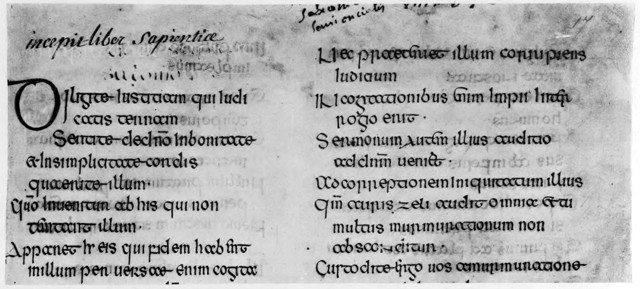 incepit liber sapientiae
Diligite iustitiam qui iudi
catis terram
Sentite de dno in bonitate
& in simplicitate cordis
quaerite illum·
Quo inventum ab his qui non
temtant illum·
Apparet hr eis qui fidem habent
in illum perversae enim cogita
Nec praeteriet illum corripiens
iudicium
In cogitationibus enim impii inter
rogo erit·
Sermonum autem illius auditio
ad dnm veniet·
Ad correptionem iniquitatum illius
Qm auris zeli audit omnia & tu
multus murmurationum non
abscondetur·
Custodite ergo vos a murmuratione